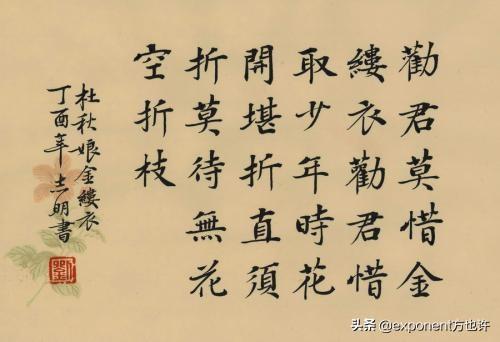 勸君莫惜金
縷衣勸君惜
取少年時花
開堪折直須
折莫待無花
空折枝
杜秋娘金縷衣
丁酉年志明書
头条 @exponent方也许